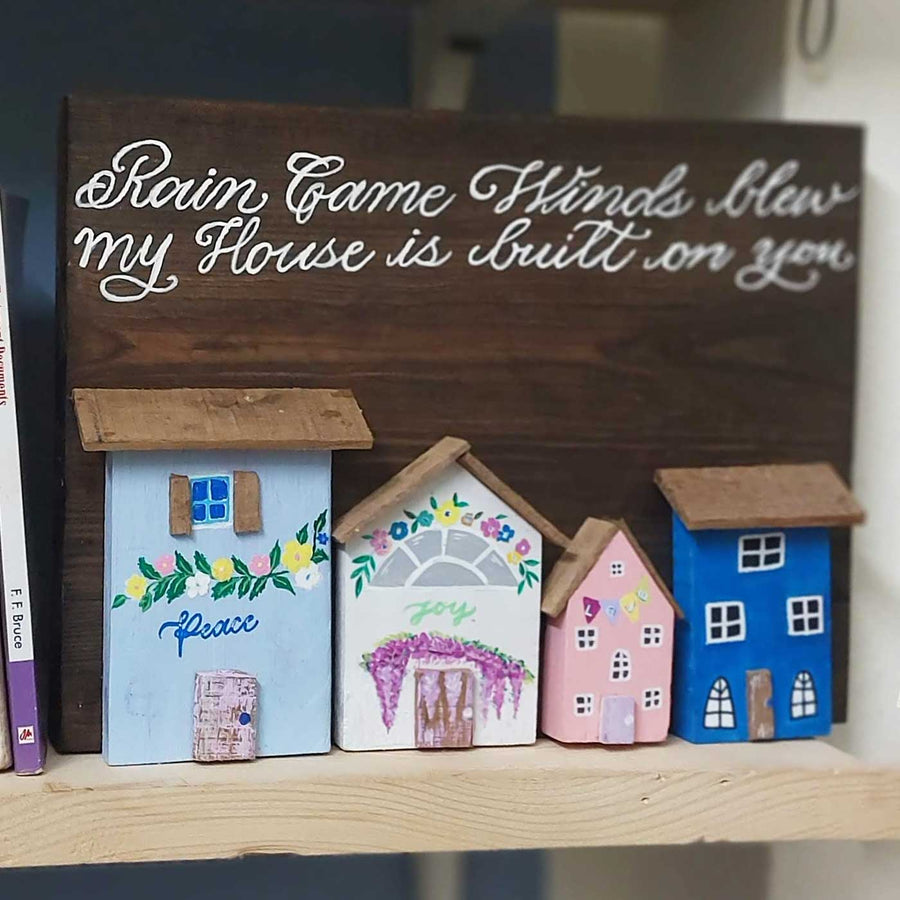 Rain Came Winds blew
my House is built on you
Peace
joy
LOVE
F. F. Bruce